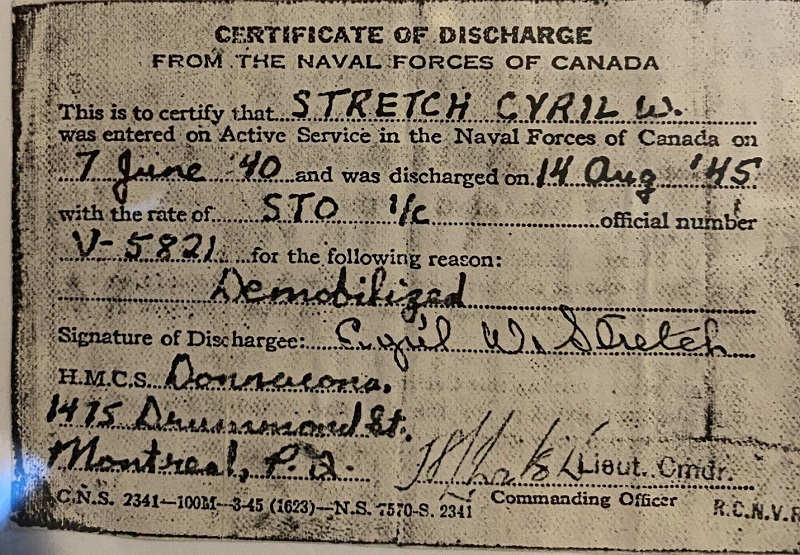 CERTIFICATE OF DISCHARGE
FROM THE NAVAL FORCES OF CANADA
This is to certify that STRETCH CYRIL W.
was entered on Active Service in the Naval Forces of Canada on
7 June '40 and was discharged on 14 Aug '45
with the rate of STO 1/c official number
V-5821 for the following reason:
Demobilized
Signature of Dischargee: Cyril W. Stretch
H.M.C.S. Donnacona,
1475 Drummond St.
Montreal, P.Q. Lieut. Cmdr.
Commanding Officer
C.N.S. 2341—100M—3-45 (1623)—N.S. 7570-S. 2341 R.C.N.V.R